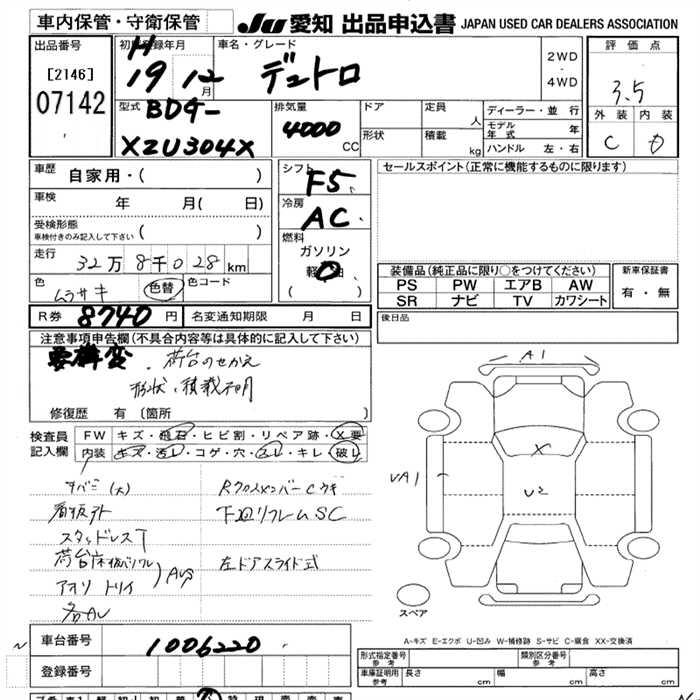 車内保管・守衛保管 JU 愛知 出品申込書 JAPAN USED CAR DEALERS ASSOCIATION
出品番号
[2146]
07142
初度登録年月
H
19年 12月
車名・グレード
デュトロ
2WD
・
4WD
評価点
3.5
外装 内装
C D
型式 BDG-
XZU304X
排気量
4000 CC
ドア
定員 人
形状
積載 kg
ディーラー・並行
モデル年式 年
ハンドル 左・右
車歴 自家用・( )
車検 年 月( 日)
受検形態
車検付きのみ記入して下さい ( )
走行 32万8千028km
色 ムラサキ 色替 色コード
シフト
F5
冷房
AC
燃料
ガソリン
軽油
( )
セールスポイント(正常に機能するものに限ります)
装備品(純正品に限り○をつけてください)
PS PW エアB AW
SR ナビ TV カワシート
新車保証書
有・無
R券 8740 円 名変通知期限 月 日
後日品
注意事項申告欄(不具合内容等は具体的に記入して下さい)
要構変 ・荷台のせかえ
形状、積載不明
修復歴 有 〔箇所 〕
検査員 記入欄
FW キズ・飛石・ヒビ割・リペア跡・X要
内装 キズ・汚レ・コゲ・穴・スレ・キレ・破レ
サバミ(大) Rクロスメンバーcサギ
看板外 下廻リフレムSC
スタッドレスT
アオリ トリイ Avg 左ドアスライド式
各AU
A1
X
VA1
U2
スペア
A-キズ E-エクボ U-凹み W-補修跡 S-サビ C-腐食 XX-交換済
車台番号 1006220
登録番号
形式指定番号 参考
類別区分番号 参考
車庫証明用 参考 長さ cm 幅 cm 高さ cm